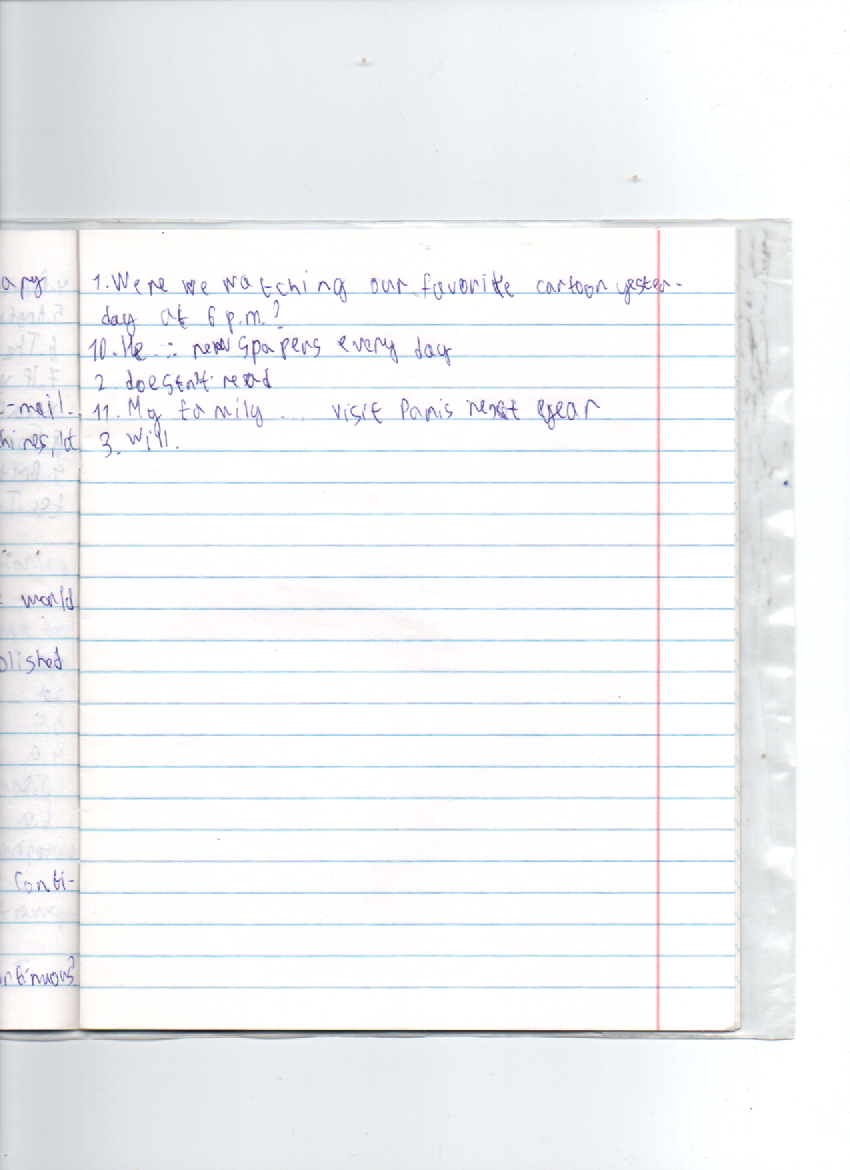 apy
-mail.
hines, Id
world
olished
Conti-
ntinuous?
1. Were we watching our favorite cartoon yester-
day at 6 p.m.?
10. He ... newspapers every day
2. doesn't read
11. My family ... visit Paris next year
3. will.